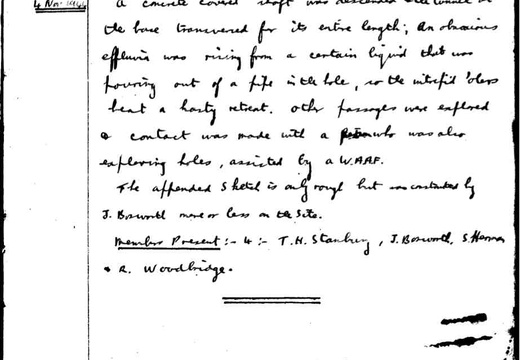 4 Nov. 1944
A concrete covered shaft was descended
the base transversed for its entire length; An obnoxious
effluvia was rising from a certain liquid that was
pouring out of a pipe in the hole, so the intrepid 'olers
beat a hasty retreat. Other passages were explored
& contact was made with a who was also
exploring holes, assisted by a W.A.A.F.
The appended Sketch is only rough but was by
J. Bosworth more or less on the Site.
Members Present :- 4 :- T.H. Stanbury, J. Bosworth, S. Herman
& R. Woodbridge.